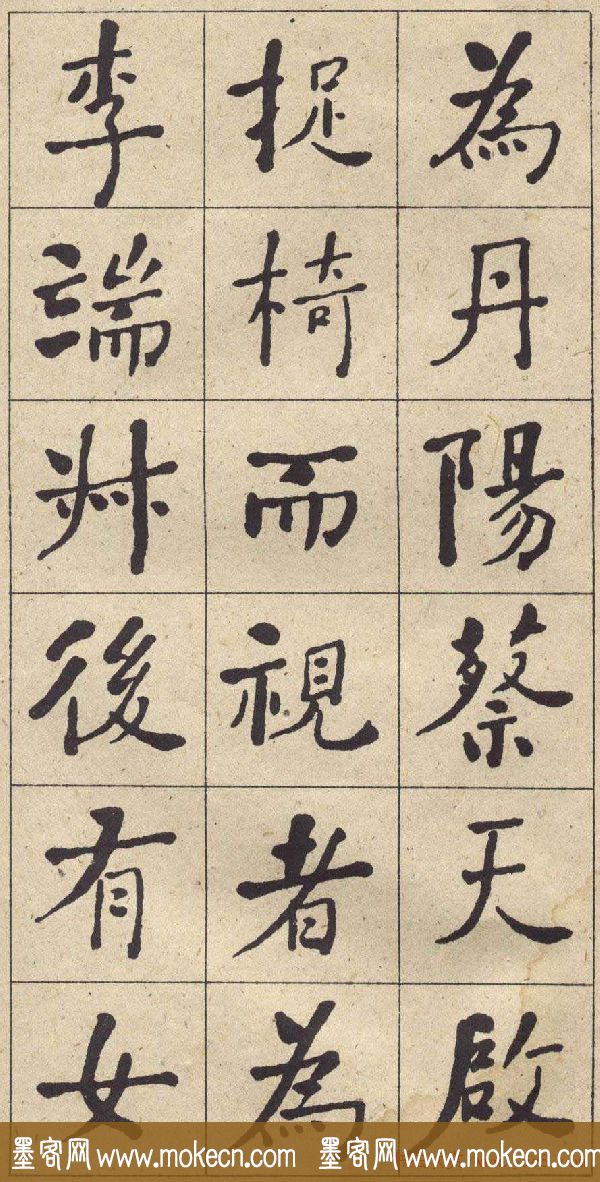 為丹陽蔡天啟
捉椅而視者為
李端叔後有女
墨客网 www.mokecn.com 墨客网 www.mokecn.com